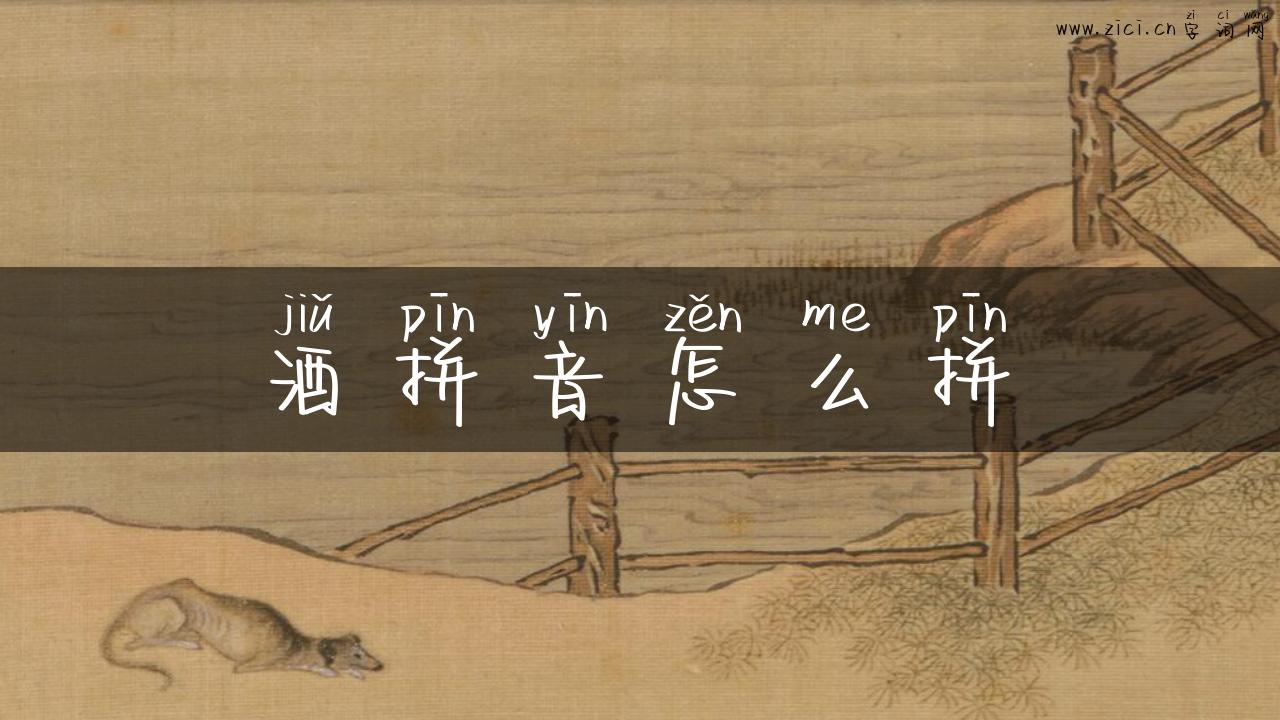 zì cí wǎng
www.zici.cn 字词网
jiǔ pīn yīn zěn me pīn
酒拼音怎么拼